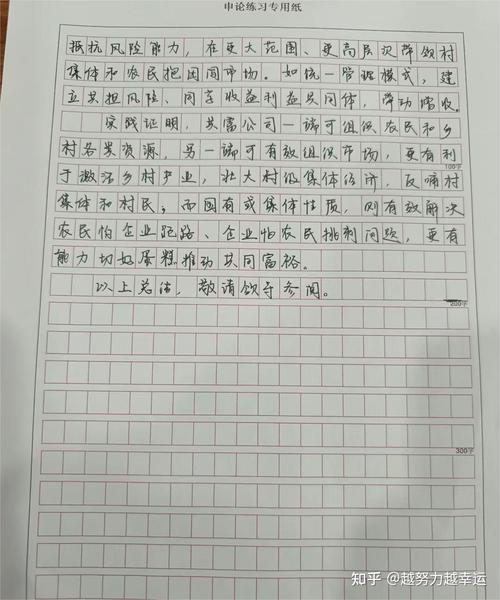 申论练习专用纸
抵抗风险能力，在更大范围、更高层次带领村
集体和农民抱团闯市场。如统一管理模式，建
立共担风险、同享收益利益共同体，带动增收。
实践证明，共富公司一端可组织农民和乡
村各类资源，另一端可有效组织市场，更有利
100字
于激活乡村产业，壮大村级集体经济，反哺村
集体和村民；而国有或集体性质，则有效解决
农民怕企业跑路、企业怕农民挑刺问题，更有
能力切好蛋糕推动共同富裕。
以上总结，敬请领导参阅。
200字
300字
知乎 @越努力越幸运